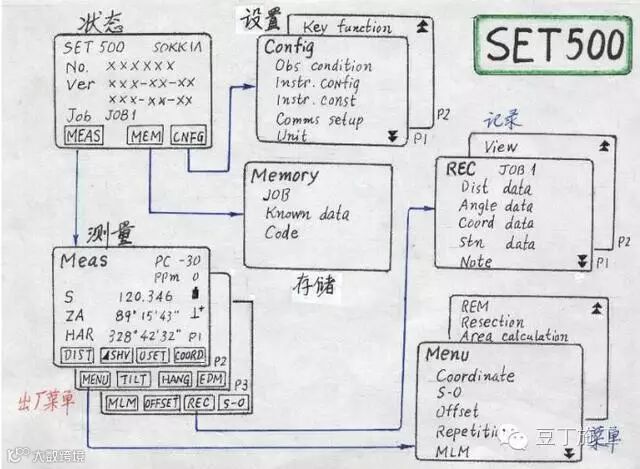 SET500
状态
SET 500 SOKKIA
No. ××××××
Ver ×××-××-××
×××-××-××
Job JOB1
MEAS MEM CNFG
设置
Key function
Config
Obs condition
Instr. config
Instr. const
Comms setup
Unit
P2
P1
Memory
JOB
Known data
Code
存储
记录
View
REC JOB1
Dist data
Angle data
Coord data
Stn data
Note
P2
P1
测量
Meas PC -30
PPm 0
S 120.346
ZA 89°15'43"
HAR 328°42'32" P1
DIST ◢SHV 0SET COORD
P2
MENU TILT HANG EDM
P3
MLM OFFSET REC S-O
出厂菜单
REM
Resection
Area calculation
Menu
Coordinate
S-O
Offset
MLM
菜单
豆丁
大数跨境